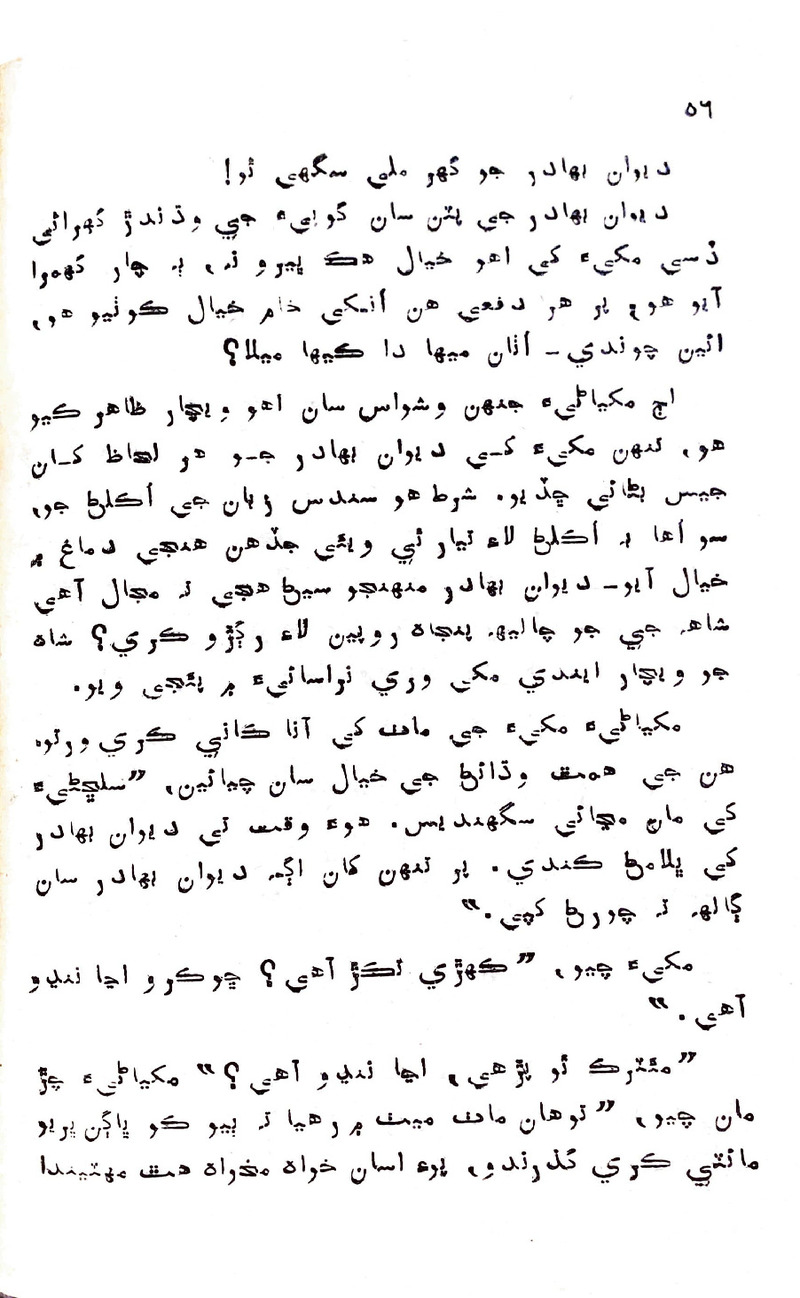 ٥٦
ديوان بهادر جو گهر ملي سگهي ٿو!
ديوان بهادر جي پٽن سان گوپيءَ جي وڌندڙ گهرائي
ڏسي مکيءَ کي اهو خيال هڪ ڀيرو نہ، بہ چار گهمرا
آيو هو، پر هر دفعي هن اُنکي خام خيال ڪوٺيو هو،
ائين چوندي ـ اُٺان ميها دا ڪيها ميلا؟
اڄ مکياڻيءَ جنهن وشواس سان اهو ويچار ظاهر ڪيو
هو، تنهن مکيءَ کي ديوان بهادر جو هر لحاظ کان
جيس بڻائي ڇڏيو. شرط هو سندس زبان جي اُڪلڻ جو،
سو اُها بہ اُڪلڻ لاءِ تيار ٿي ويئي جڏهن هنجي دماغ ۾
خيال آيو ـ ديوان بهادر منهنجو سيڻ هجي تہ مجال آهي
شاهہ جي جو چاليهہ پنجاه روپين لاءِ رڳڙو ڪري؟ شاه
جو ويچار ايندي مکي وري نراسائيءَ ۾ پئجي ويو.
مکياڻيءَ مکيءَ جي ماٺ کي آنا ڪاني ڪري ورتو.
هن جي همت وڌائڻ جي خيال سان چيائين، ”سلڇڻيءَ
کي مان مڃائي سگهنديس. هوءَ وقت تي ديوان بهادر
کي ڀلامڻ ڪندي. پر تنهن کان اڳہ ديوان بهادر سان
ڳالهہ تہ چورڻ کپي.“
مکيءَ چيو، ”ڪهڙي تڪڙ آهي؟ ڇوڪرو اڃا ننڍو
آهي.“
”مئٽرڪ ٿو پڙهي، اڃا ننڍو آهي؟“ مکياڻيءَ چڙ
مان چيو، ”توهان ماٺ ميٺ ۾ رهيا تہ ٻيو ڪو ڀاڳن ڀريو
مائٽي ڪري گذرندو، پوءِ اسان خواه مخواه هٿ مهٽيندا